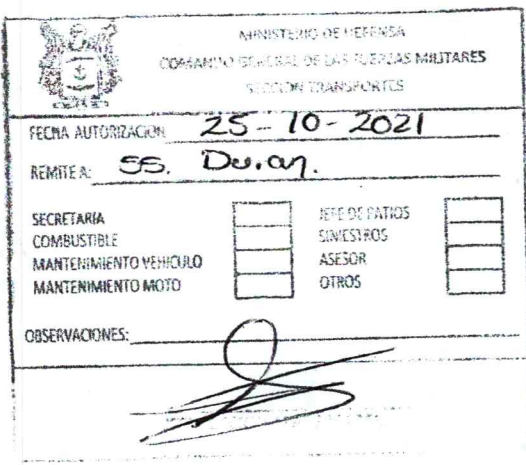 MINISTERIO DE DEFENSA
COMANDO GENERAL DE LAS FUERZAS MILITARES
SECCION TRANSPORTES
FECHA AUTORIZACION 25-10-2021
REMITE A: SS. Duran.
SECRETARIA
COMBUSTIBLE
MANTENIMIENTO VEHICULO
MANTENIMIENTO MOTO
JEFE DE PATIOS
SINIESTROS
ASESOR
OTROS
OBSERVACIONES: